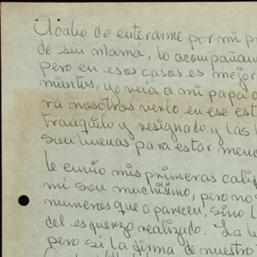 Acabo de enterarme por mi p
de su mamá, lo acompañam
pero en esos casos es mejor
mientos, yo veía a mi papá
ra nosotros verlo en ese est
tranquilo y resignado y las
son buenas para estar
le envío mis primeras cali
mi son muchísimo, pero no
números que aparecen, sino l
del esfuerzo realizado. La
pero si la firma de nuestro